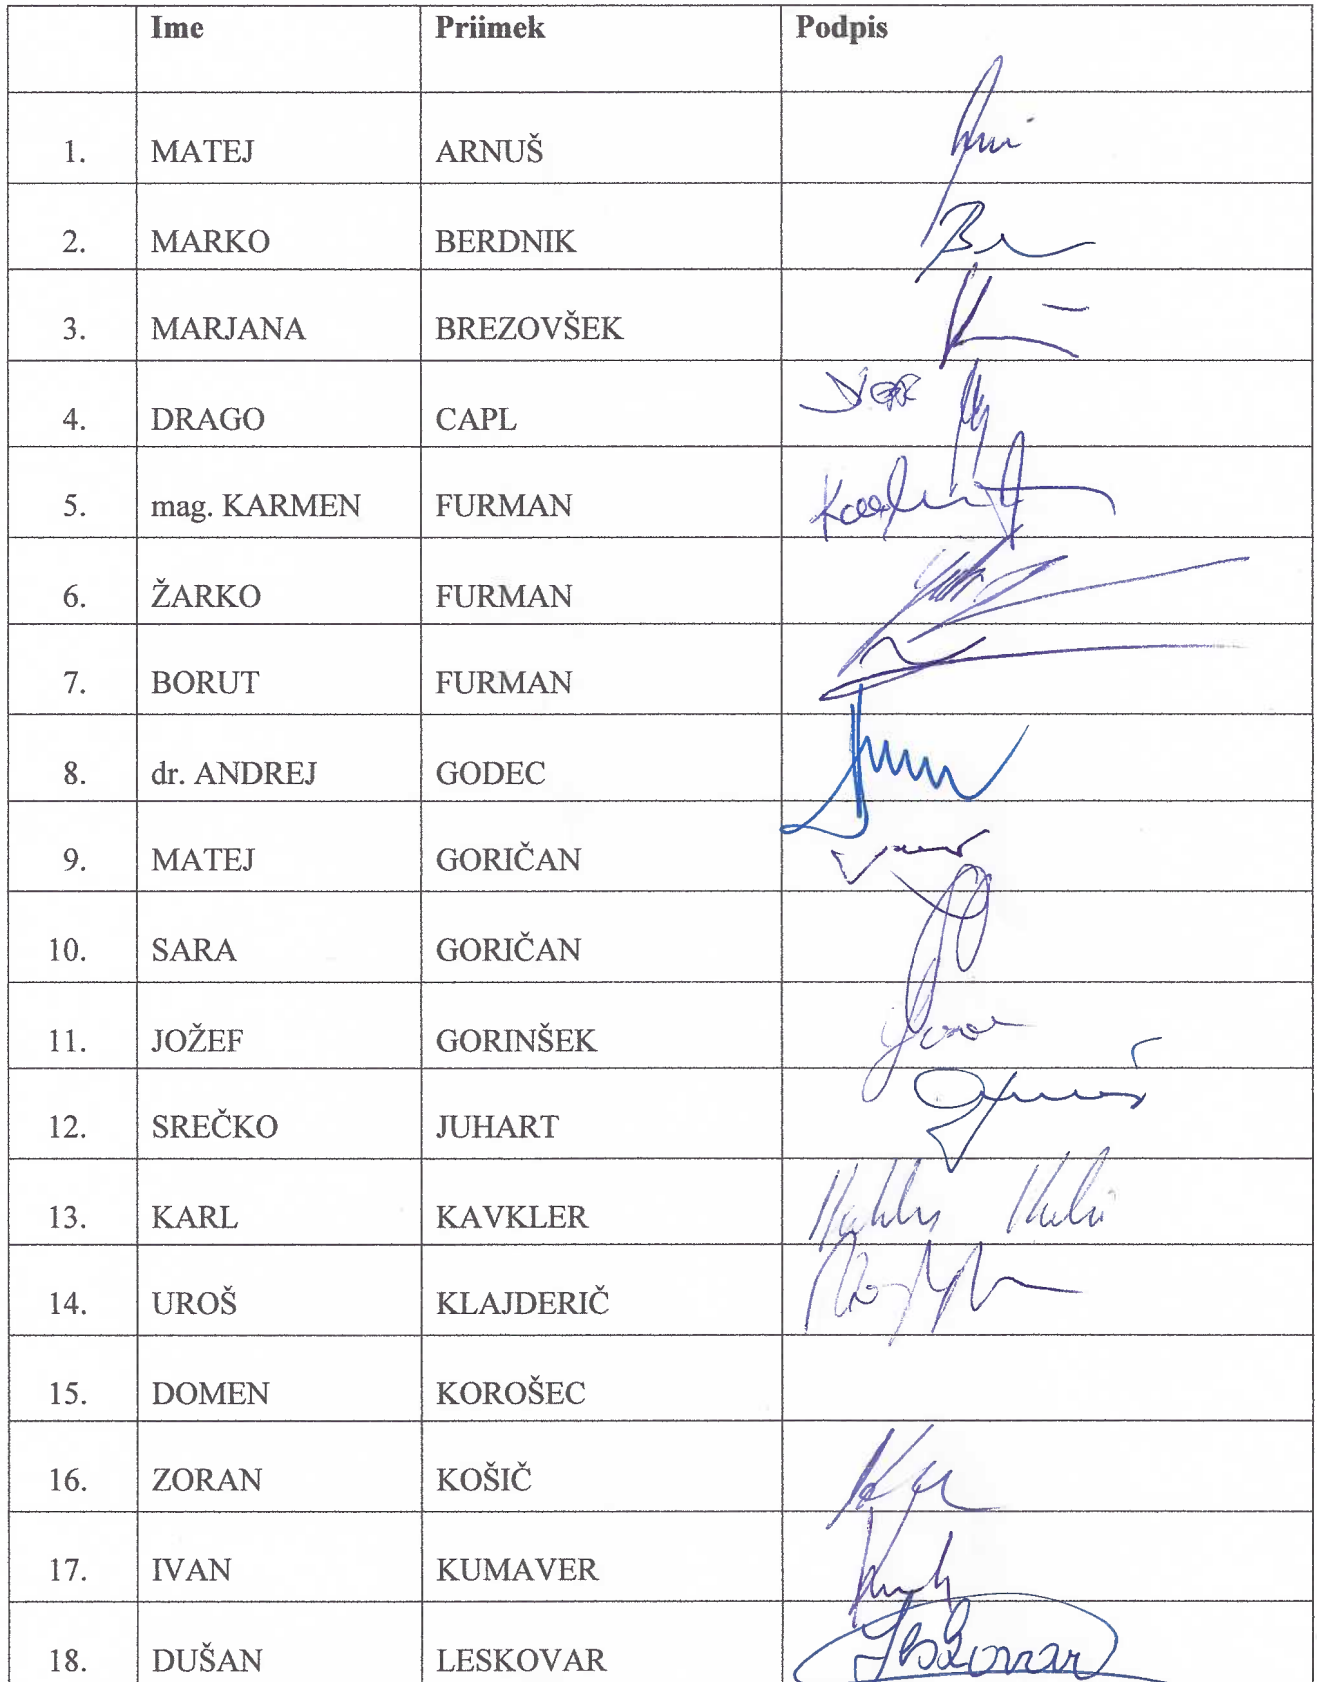 Ime Priimek Podpis
1. MATEJ ARNUŠ
2. MARKO BERDNIK
3. MARJANA BREZOVŠEK
4. DRAGO CAPL
5. mag. KARMEN FURMAN
6. ŽARKO FURMAN
7. BORUT FURMAN
8. dr. ANDREJ GODEC
9. MATEJ GORIČAN
10. SARA GORIČAN
11. JOŽEF GORINŠEK
12. SREČKO JUHART
13. KARL KAVKLER
14. UROŠ KLAJDERIČ
15. DOMEN KOROŠEC
16. ZORAN KOŠIČ
17. IVAN KUMAVER
18. DUŠAN LESKOVAR Leskovar